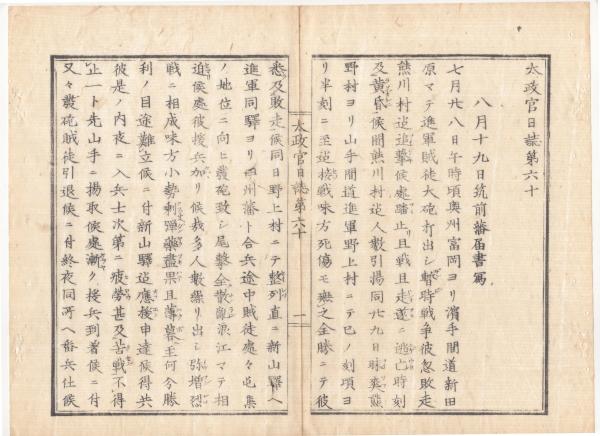 太政官日誌第六十
八月十九日筑前藩届書寫
七月廿八日午時頃奥州富岡ヨリ濱手間道新田
原マテ進軍賊徒大砲打出シ暫時戦争彼忽敗走
熊川村迄進撃候處踏止リ且戦且走遂ニ逃亡時刻
及黄昏候間熊川村迄人数引揚同廿九日昧爽熊
野村ヨリ山手間道進軍野上村ニテ巳ノ刻頃ヨ
リ半刻ニ至迄接戦味方死傷モ無之全勝ニテ彼
太政官日誌第六十
一
悉及敗走候同日野上村ニテ整列直ニ新山驛ヘ
進軍同驛ヨリ四州藩ト合兵途中賊徒處々屯集
ノ地位ニ向ヒ發砲致シ尾撃全散亂浪江マテ相
迫候處彼援兵加リ候哉多人数繰リ出シ弥増烈
戦ニ相成味方小勢剰彈藥盡果且薄暮ニ至何分勝
利ノ目途難立候ニ付新山驛迄應援申達候得共
彼是ノ内夜ニ入兵士次第ニ疲勞甚及苦戦不得
止一ト先山手ニ揚取候處漸ク援兵到着候ニ付
又々發砲賊徒引退候ニ付終夜同所ヘ番兵仕候